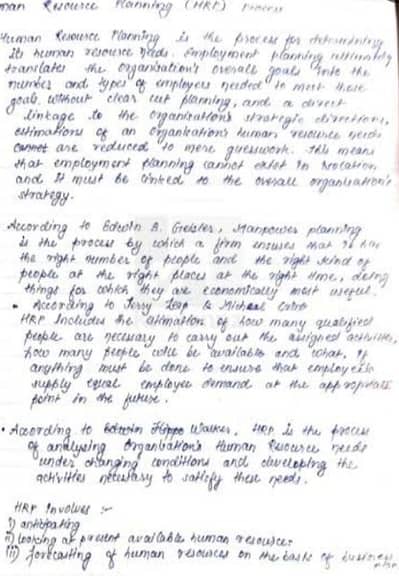 man Resource Planning (HRP) Process
Human Resource Planning is the process for determining
its human resource needs. Employment planning ultimately
translates the organization's overall goals into the
number and types of employees needed to meet these
goals. Without clear cut planning, and a direct
linkage to the organization's strategic direction,
estimations of an organization's human resource needs
are reduced to mere guesswork. This means
that employment planning cannot exist in isolation
and it must be linked to the overall organisation's
strategy.
According to Edwin B. Geisler, Manpower planning
is the process by which a firm ensures that it has
the right number of people and the right kind of
people at the right places at the right time, doing
things for which they are economically most useful.
• According to Terry Leap & Micheal
HRP includes the of how many qualified
people are necessary to carry out the assigned activities,
how many people will be available and what, if
anything must be done to ensure that employee
supply equal employee demand at the appropriate
point in the future.
• According to Walker, HRP is the process
of analysing organization's Human Resource needs
under changing conditions and developing the
activities necessary to satisfy these needs.
HRP Involves :-
i) anticipating
ii) looking at present available human resources
iii) forecasting of human resources on the basis of business